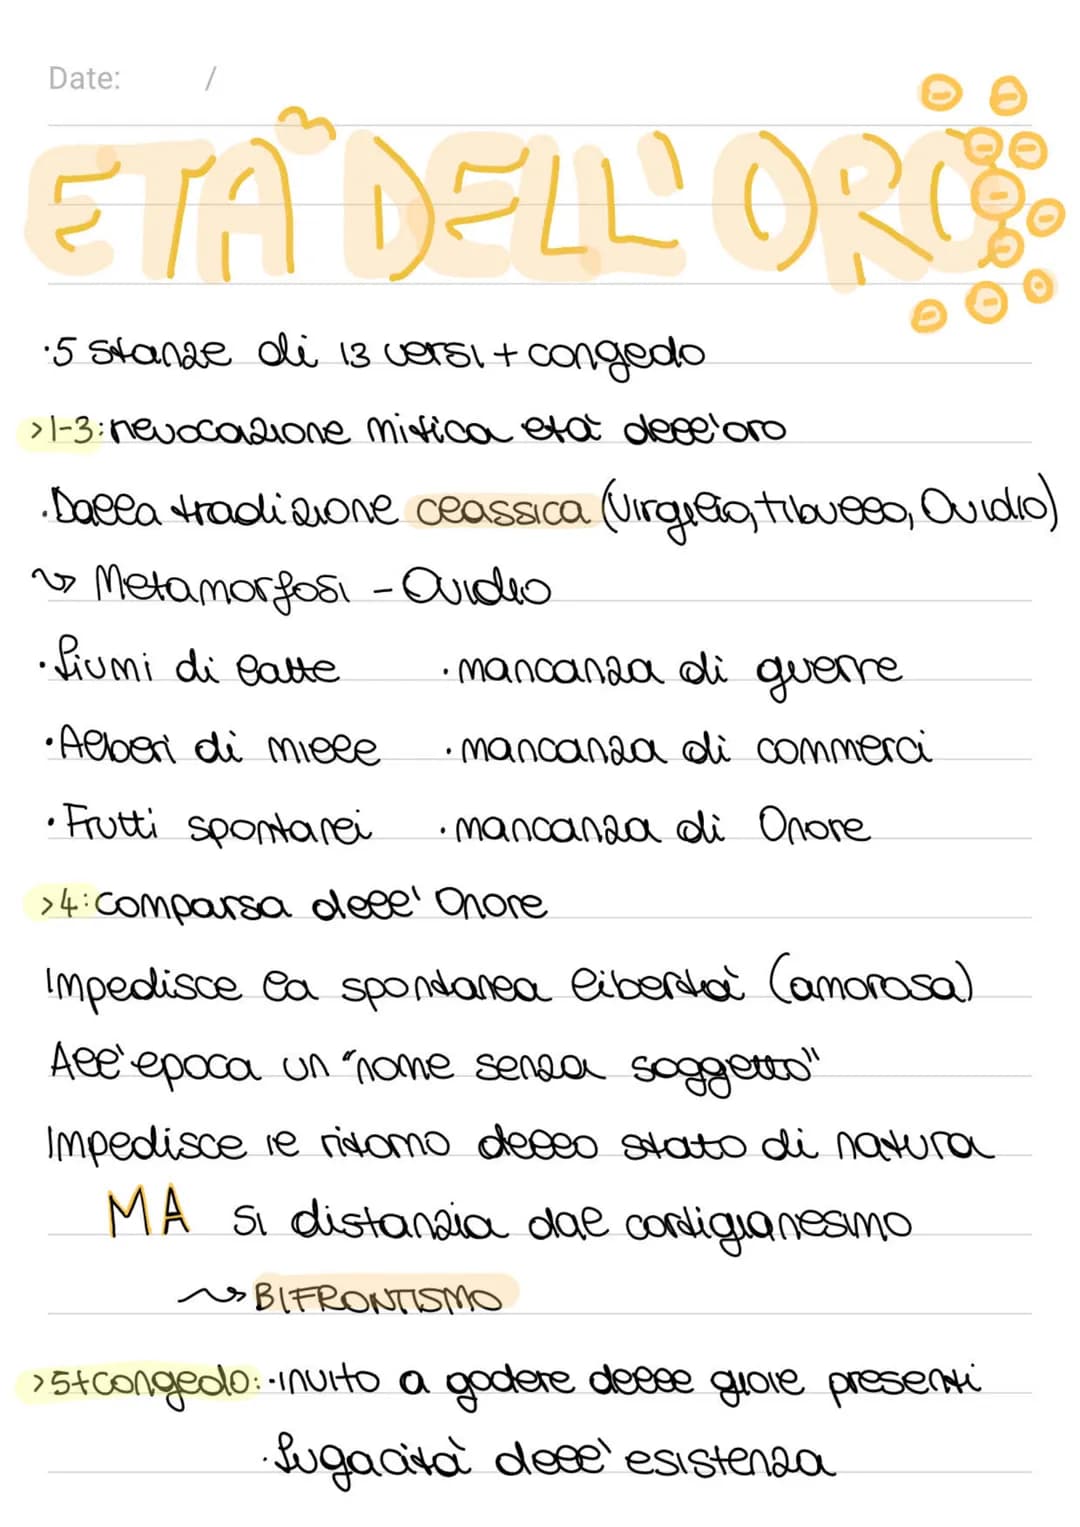 Date: /
ETÀ DELL'ORO
·5 stanze di 13 versi + congedo
>1-3: rievocazione mitica età dell'oro
·Dalla tradizione classica (Virgilio, tibullo, Ovidio)
Metamorfosi - Ovidio
·fiumi di latte ·mancanza di guerre
·Alberi di miele ·mancanza di commerci
·Frutti spontanei ·mancanza di Onore
>4: comparsa dell'Onore
Impedisce la spontanea libertà (amorosa)
All'epoca un "nome senza soggetto"
Impedisce il ritorno dello stato di natura
MA si distanzia dal cortigianesimo
BIFRONTISMO
>5+congedo: ·invito a godere delle gioie presenti
·fugacità dell'esistenza